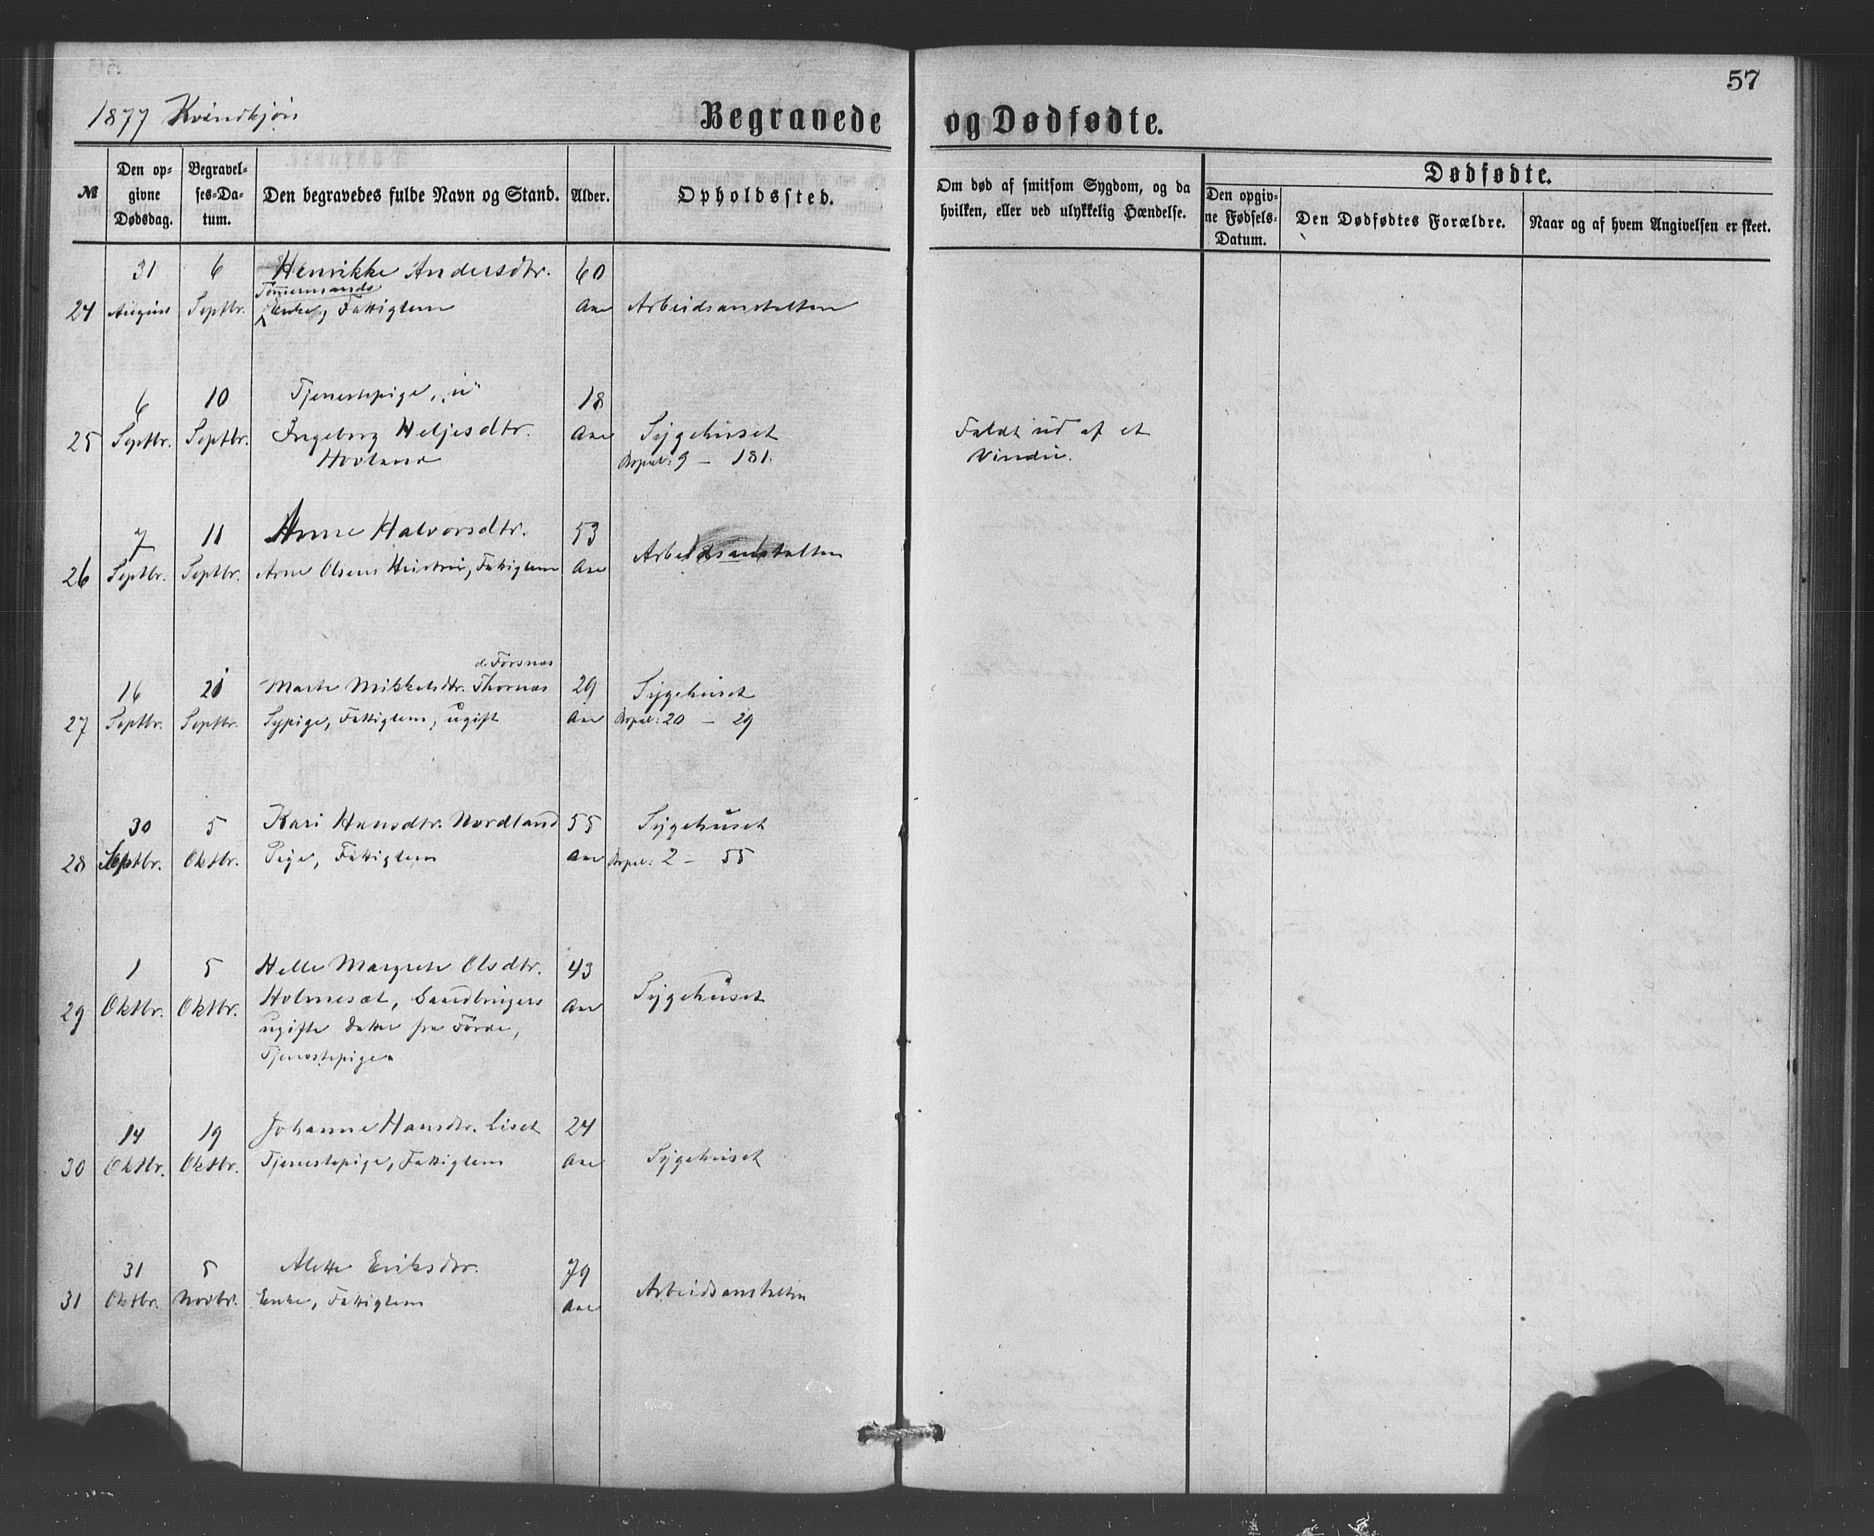 57
1877 Kvindkjøn
Begravede og Dødfødte.
№
Den op-
givne
Dødsdag.
Begravel-
ses-Da-
tum.
Den begravedes fulde Navn og Stand.
Alder.
Opholdssted.
Om død af smitsom Sygdom, og da
hvilken, eller ved ulykkelig Hændelse.
Dødfødte.
Den opgiv-
ne Fødsels-
Datum.
Den Dødfødtes Forældre.
Naar og af hvem Angivelsen er skeet.
31 6 Henrikke Andersdtr. 60
Tømermands
24 August Septbr. Enke, Fattiglem Aar Arbeidsanstalten
6 10 Tjenestepige, 18
25 Septbr. Septbr. Ingeborg Heljesdtr. Aar Sygehuset Faldt ud af et
Hovland 9 – 181. Vindu.
7 11 Anne Halvorsdtr. 53
26 Septbr. Septbr. Arne Olsens Hustru, Fattiglem Aar Arbeidsanstalten
d. Forsnæs
16 21 Marte Mikkelsdtr. Thornæs 29 Sygehuset
27 Septbr. Septbr. Sypige, Fattiglem, ugift Aar 20 – 29
30 5 Kari Hansdtr. Nordland 55 Sygehuset
28 Septbr. Oktbr. Pige, Fattiglem Aar 2 – 55
1 5 Helle Margrete Olsdtr. 43
29 Oktbr. Oktbr. Holmesæt, Gaardbrugers Aar Sygehuset
ugifte Datter fra Førde,
Tjenestepige
14 19 Johanne Hansdtr. Liset 24
30 Oktbr. Oktbr. Tjenestepige, Fattiglem Aar Sygehuset
31 5 Alette Eriksdtr. 79
31 Oktbr. Novbr. Enke, Fattiglem Aar Arbeidsanstalten